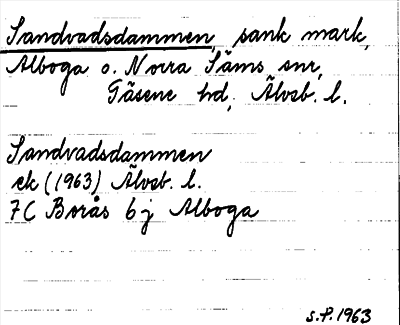 Sandvadsdammen, sank mark,
Alboga o. Norra Säms snr,
Gäsene hd, Älvsb. l.
Sandvadsdammen
ek (1963) Älvsb. l.
7C Borås 6j Alboga
S.P. 1963